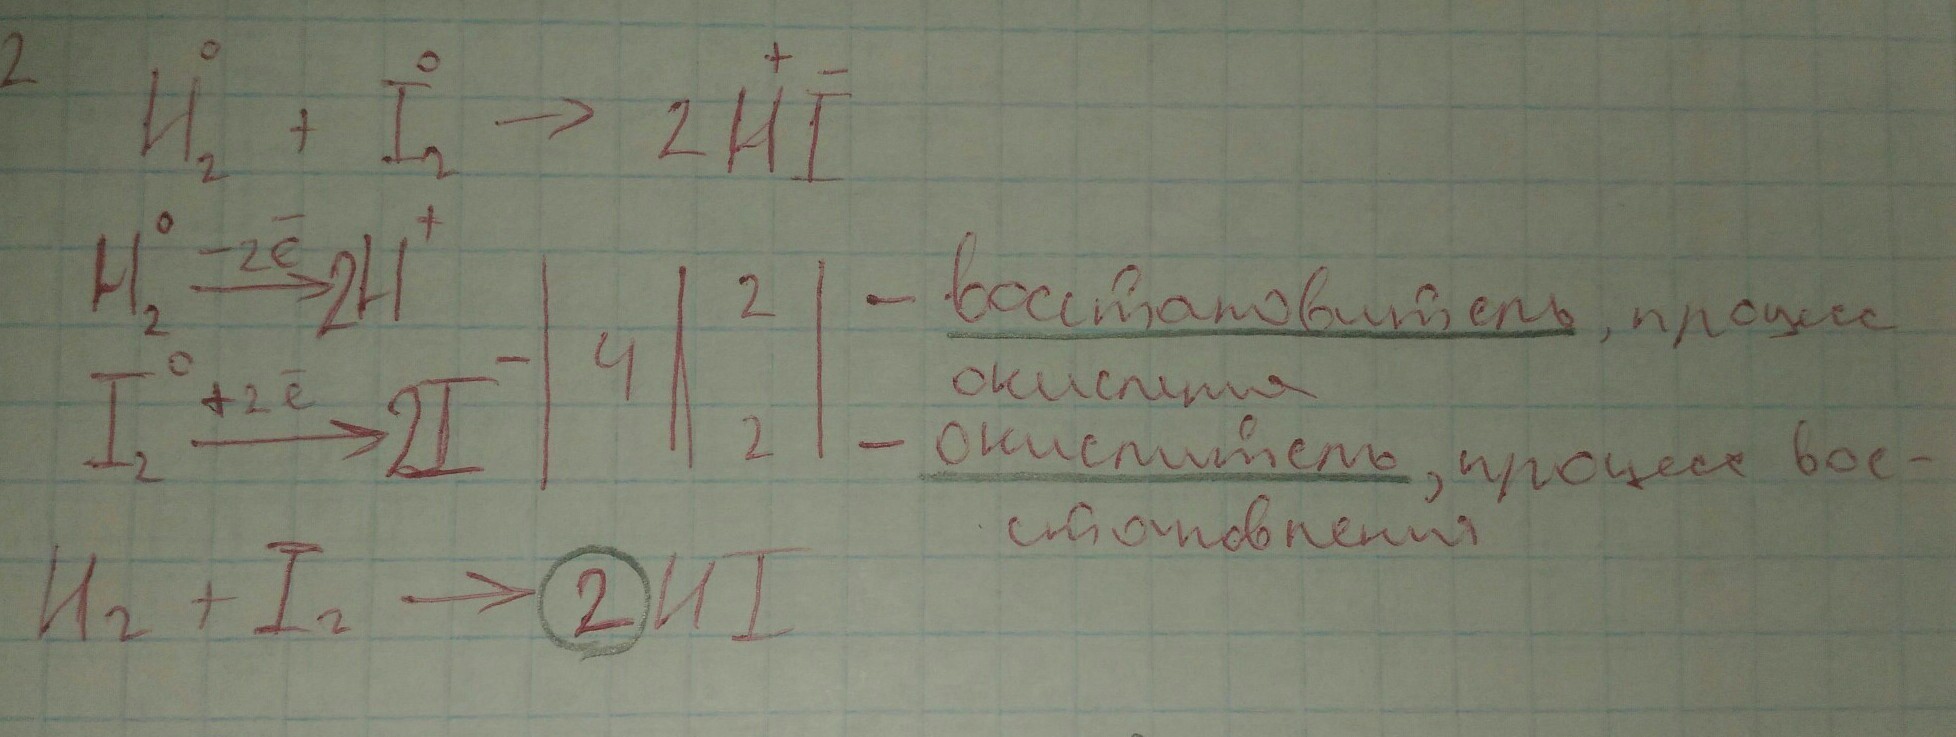 2
H₂⁰ + I₂⁰ → 2H⁺I⁻
H₂⁰ -2ē → 2H⁺ | 4 | 2 | - восстановитель, процесс
окисления
I₂⁰ +2ē → 2I⁻ | 2 | - окислитель, процесс вос-
становления
H₂ + I₂ → 2HI